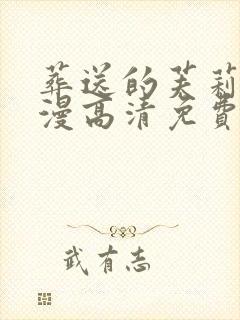 葬送的芙莉
漫高清免費
武有志